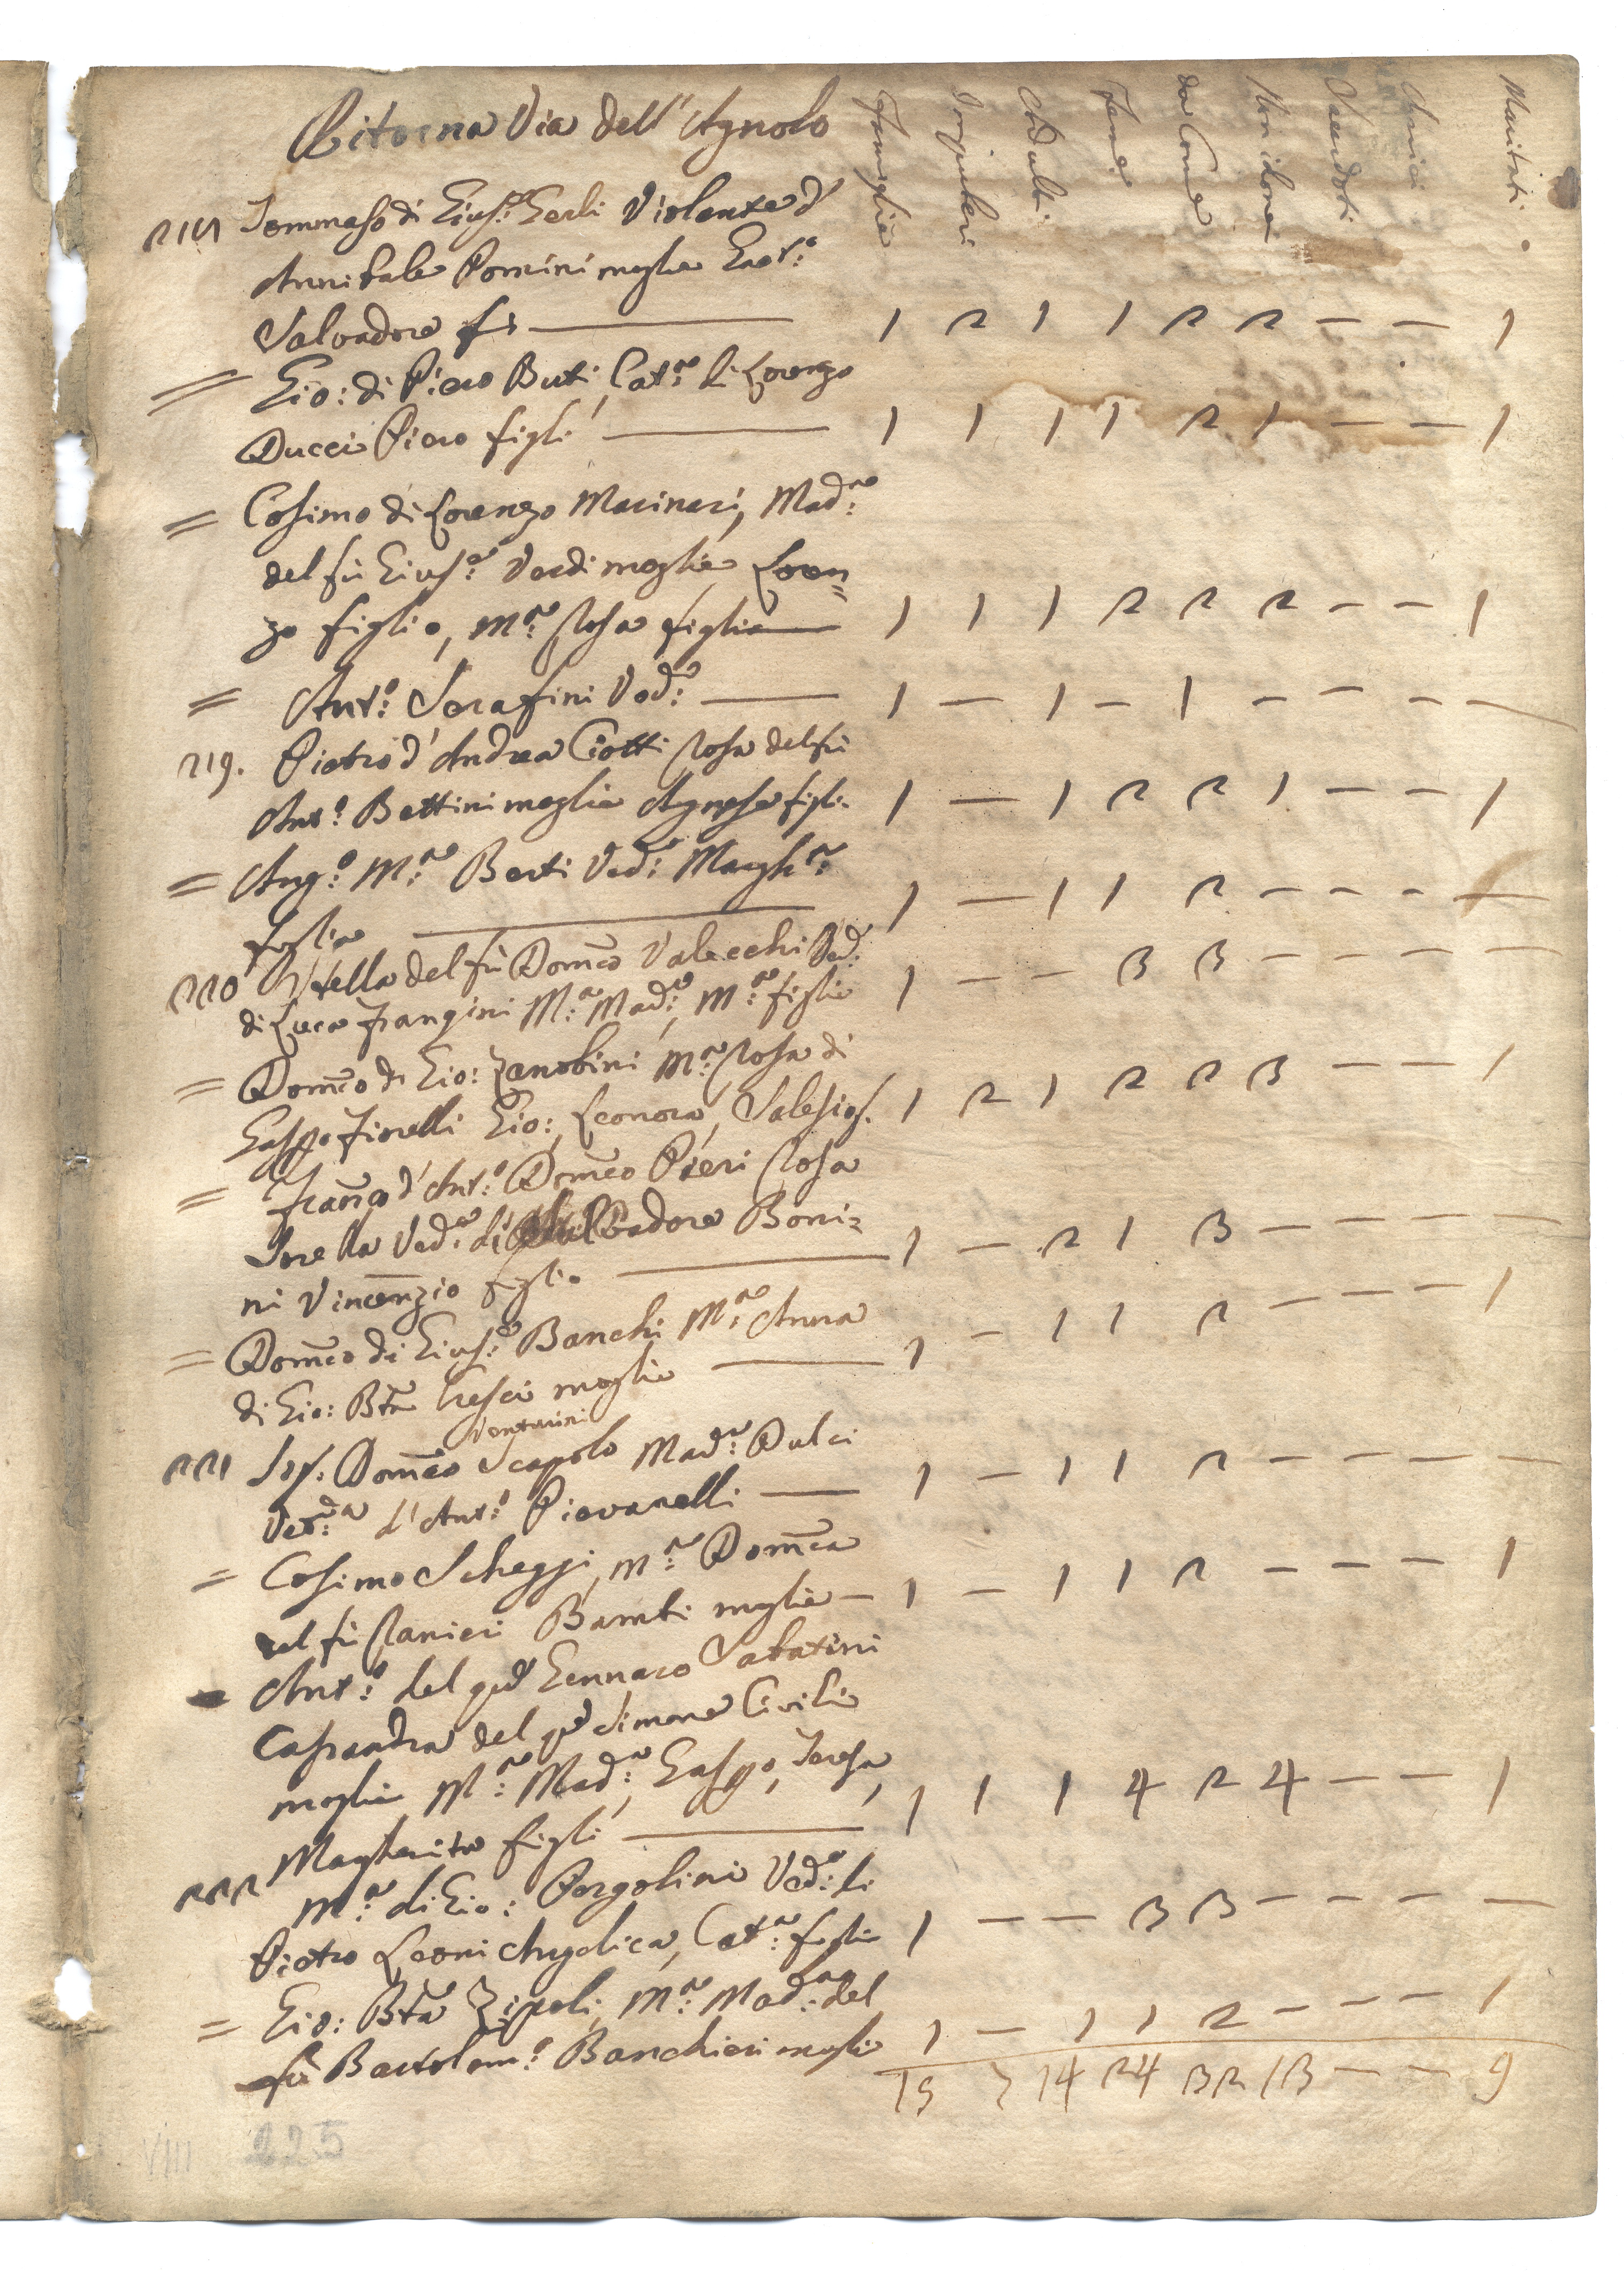 Ritorna Via dell'Agnolo
Famiglie Impuberi Adulti Femine da Come Non idonei Sacerdoti Cherici Maritati
Tommaso di Gius:e Gerli Violante d'
Annibale Pomini moglie Gaet:o
Salvadore fi 1 2 1 1 2 2 — — 1
= Gio: di Piero Buti, Cat:a di Lorenzo
Ducci Piero figli 1 1 1 1 2 1 — — 1
= Cosimo di Lorenzo Marinari, Mad:a
del fù Gius:e Verdi moglie Loren=
zo figlio, M:a Rosa figlia 1 1 1 2 2 2 — — 1
= Ant:o Serafini Ved:o 1 — 1 — 1 — — — —
219. Pietro d'Andrea Ciotti Rosa del fù
Ant:o Bettini moglie Agnese figli. 1 — 1 2 2 1 — — 1
= Ang:o M:a Berti Ved:a Margh:a
figlia 1 — 1 1 2 — — — —
220 Stella del fù Dom̃co Valecchi Ved:
di Luca Frangini M:a Mad:a, M:a figlie 1 — — 3 3 — — — —
= Dom̃co di Gio: Zanobini M:a Rosa di
Gasp̃o Fiorelli Gio:, Leonora, Salesio f. 1 2 1 2 2 3 — — 1
= Franc̃o d'Ant:o Dom̃co Pieri Rosa
Sorella Ved:a di Salvadore Boni=
ni Vincenzio figlio 1 — 2 1 3 — — — —
= Dom̃co di Gius:e Banchi M:a Anna
di Gio: Bt̃a Cresci moglie 1 — 1 1 2 — — — 1
Venturini
221 Dom̃co Scapolo Mad:a Dulci
Ved:a d'Ant:o Piovanelli — 1 — 1 1 2 — — — —
= Cosimo Scheggi, M:a Dom̃ca
del fù Ranieri Bambi moglie — 1 — 1 1 2 — — — 1
Ant:o del qd̃ Gennaro Sabatini
Casandra del qd̃ Simone Civili
moglie M:a Mad:a, Gasp̃o, Teresa,
Margherita figli 1 1 1 4 2 4 — — 1
222 M:a di Gio: Pergolini Ved:a di
Pietro Leoni Angelica, Cat:a figlie 1 — — 3 3 — — — —
= Gio: Bt̃a Zipoli, M:a Mad:na del
fù Bartolom:o Banchieri moglie 1 — 1 1 2 — — — 1
15 7 14 24 32 13 — — 9
VIII 225